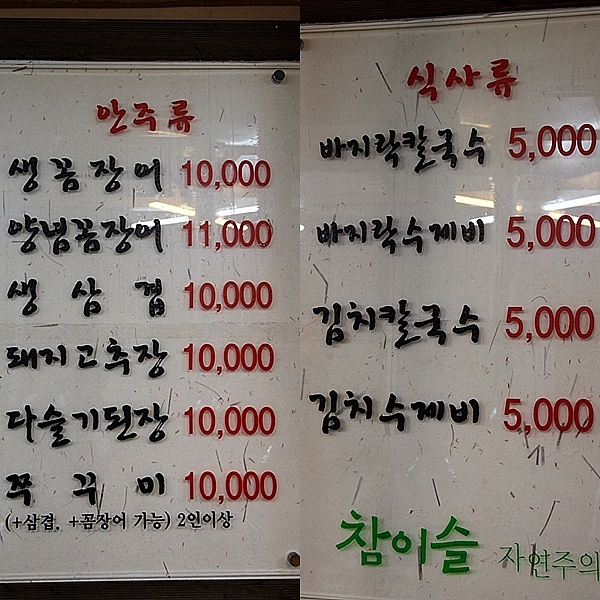 안주류
생꼼장어 10,000
양념꼼장어 11,000
생삼겹 10,000
돼지고추장 10,000
다슬기된장 10,000
쭈꾸미 10,000
(+삼겹, +꼼장어 가능) 2인이상
식사류
바지락칼국수 5,000
바지락수제비 5,000
김치칼국수 5,000
김치수제비 5,000
참이슬 자연주의